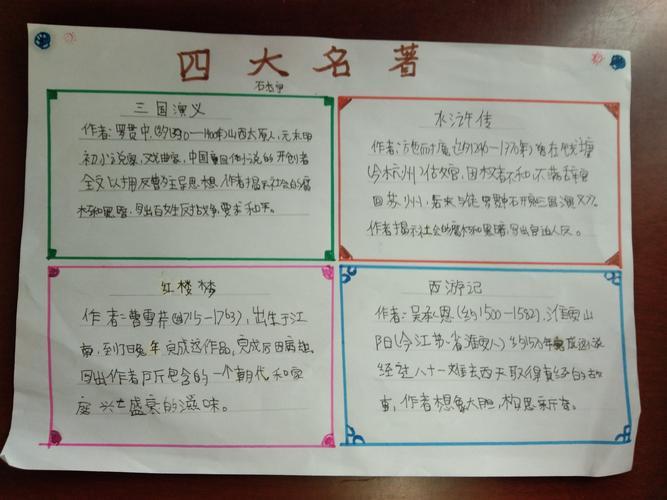 四大名著
三国演义
作者:罗贯中,(约1330—1400年)山西太原人,元末明
初小说家,戏曲家,中国章回体小说的开创者
全文以拥反曹为主导思想,作者揭示社会的腐
和黑暗,写出百姓反战争,要求和平。
水浒传
作者:施耐庵(约1296—1370年)曾在钱塘
(今杭州)估官,因权者不和不满辞官
回苏州,后来与徒罗贯中三国演义
作者揭示社会的腐和黑暗,写出官迫人反。
红楼梦
作者:曹雪芹(1715—1763),出生于江
南,到了晚年完成这作品,完成后因病
写出作者所包含的一个朝代和家
庭兴亡盛衰的滋味。
西游记
作者:吴承恩(约1500—1582),淮安山
阳(今江苏省淮安人)约年完成这小说
经过八十一难去西天取得真经的故
事,作者想象大胆,构思新奇。